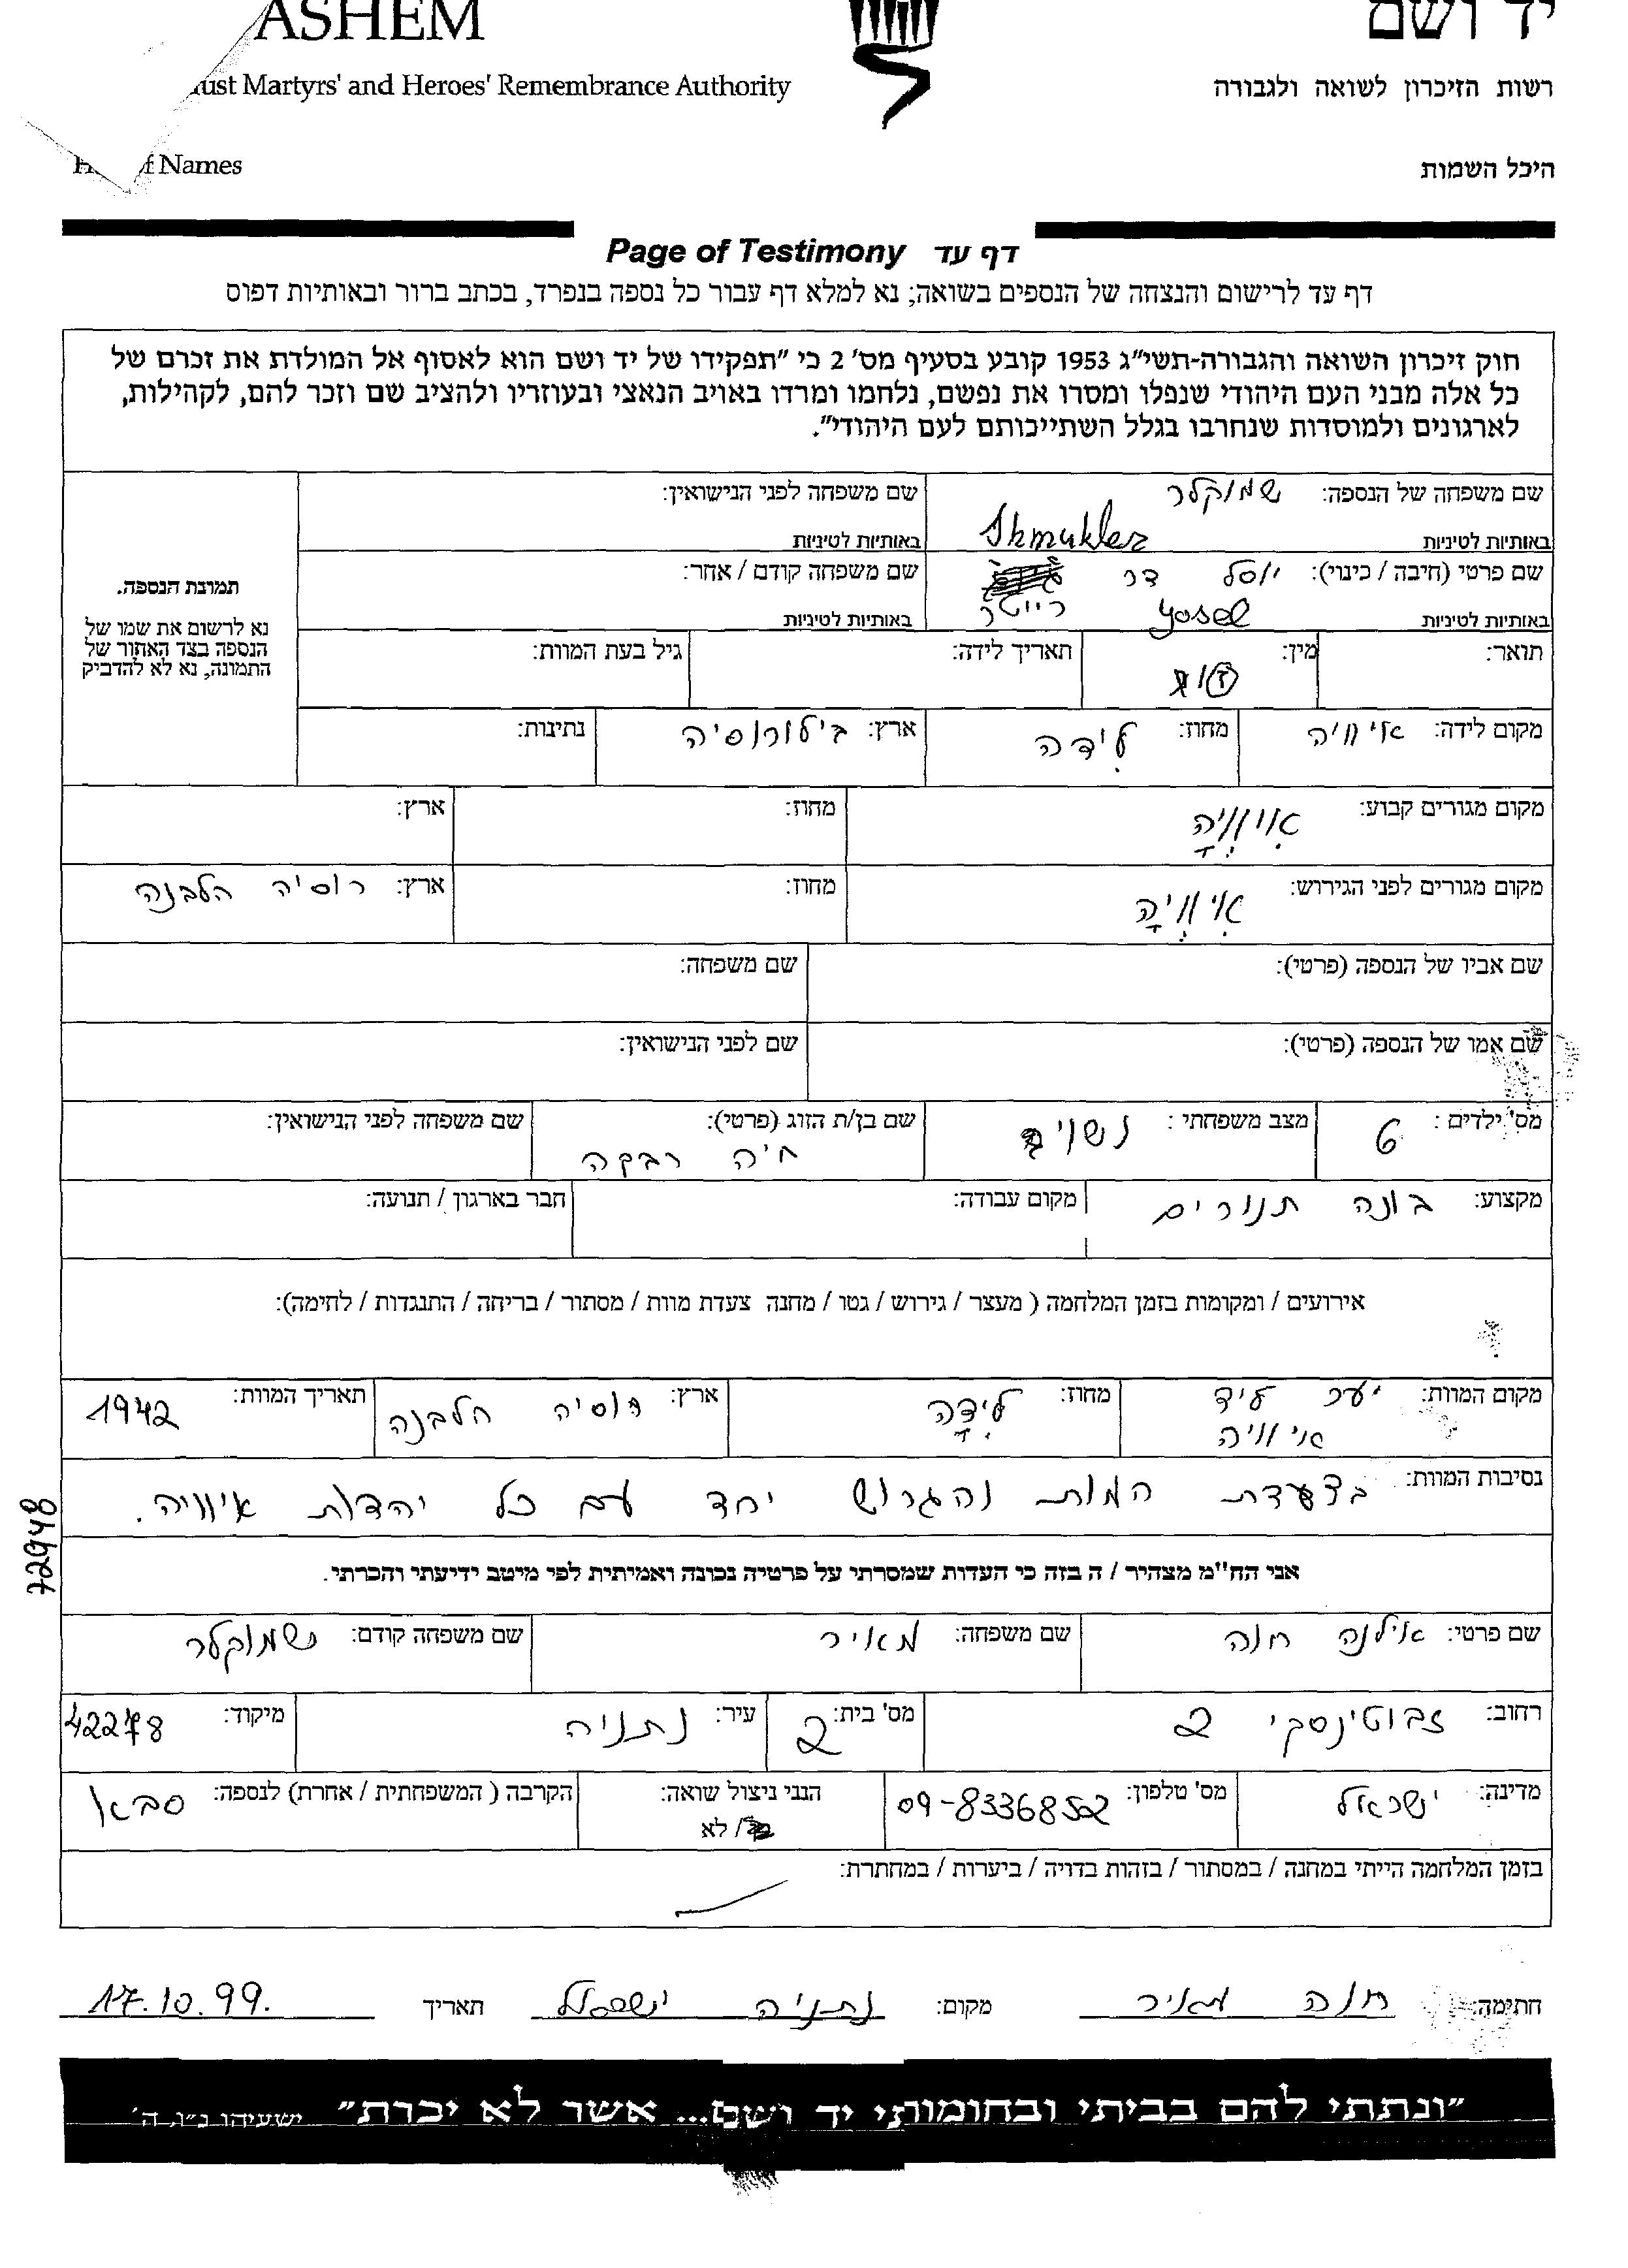 ASHEM
יד ושם
ust Martyrs' and Heroes' Remembrance Authority
רשות הזיכרון לשואה ולגבורה
f Names
היכל השמות
Page of Testimony דף עד
דף עד לרישום והנצחה של הנספים בשואה; נא למלא דף עבור כל נספה בנפרד, בכתב ברור ובאותיות דפוס
חוק זיכרון השואה והגבורה-תשי״ג 1953 קובע בסעיף מס' 2 כי ״תפקידו של יד ושם הוא לאסוף אל המולדת את זכרם של
כל אלה מבני העם היהודי שנפלו ומסרו את נפשם, נלחמו ומרדו באויב הנאצי ובעוזריו ולהציב שם וזכר להם, לקהילות,
לארגונים ולמוסדות שנחרבו בגלל השתייכותם לעם היהודי״.
שם משפחה של הנספה: שמוקלר
שם משפחה לפני הנישואין:
באותיות לטיניות Shmukler
באותיות לטיניות
תמונת הנספה.
נא לרשום את שמו של
הנספה בצד האחור של
התמונה, נא לא להדביק
שם פרטי (חיבה / כינוי): יוסל דר
שם משפחה קודם / אחר:
באותיות לטיניות Yosel רייטר
באותיות לטיניות
תואר:
מין: ז /
תאריך לידה:
גיל בעת המוות:
מקום לידה: איוויה
מחוז: לִידה
ארץ: בילורוסיה
נתינות:
מקום מגורים קבוע: אִיוְויָה
מחוז:
ארץ:
מקום מגורים לפני הגירוש: אִיוְויָה
מחוז:
ארץ: רוסיה הלבנה
שם אביו של הנספה (פרטי):
שם משפחה:
שם אמו של הנספה (פרטי):
שם לפני הנישואין:
מס' ילדים: 6
מצב משפחתי: נשוי
שם בן/ת הזוג (פרטי): חיה רבקה
שם משפחה לפני הנישואין:
מקצוע: בונה תנורים
מקום עבודה:
חבר בארגון / תנועה:
אירועים / ומקומות בזמן המלחמה ( מעצר / גירוש / גטו / מחנה צעדת מוות / מסתור / בריחה / התנגדות / לחימה):
מקום המוות: יער ליד
איוויה
מחוז: לִידָה
ארץ: רוסיה הלבנה
תאריך המוות: 1942
נסיבות המוות: בצעדת המות והגרוש יחד עם כל יהדות איוויה.
72948
אני הח"מ מצהיר / ה בזה כי העדות שמסרתי על פרטיה נכונה ואמיתית לפי מיטב ידיעתי והכרתי.
שם פרטי: אילנה חנה
שם משפחה: מאיר
שם משפחה קודם: שמוקלר
רחוב: זבוטינסקי 2
מס' בית: 2
עיר: נתניה
מיקוד: 42278
מדינה: ישראל
מס' טלפון: 09-8336852
הנני ניצול שואה:
/ לא
הקרבה ( המשפחתית / אחרת) לנספה: סבא
בזמן המלחמה הייתי במחנה / במסתור / בזהות בדויה / ביערות / במחתרת:
חתימה: חנה מאיר
מקום: נתניה ישראל
תאריך 17.10.99.
״ונתתי להם בביתי ובחומותי יד ושם... אשר לא יכרת״ ישעיהו נ״ו, ה'